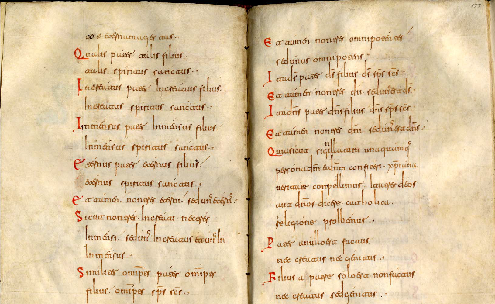 coeterna magestas
Qualis pater talis filius
talis spiritus sanctus
Increatus pater Increatus filius
Increatus spiritus sanctus
Inmensus pater Inmensus filius
Inmensus spiritus sanctus
Eternus pater eternus filius
eternus spiritus sanctus
Et tamen non tres eterni sed unus eternus
Sicut non tres Increati nec tres
Inmensi sed unus Increatus et unus
Inmensus
Similiter omnips pater omnips
filius omnips sps scs
Et tamen non tres omnipotentes
sed unus omnipotens
Ita ds pater ds filius ds sps scs
Et tamen non tres dii sed unus est ds
Ita dns pater dns filius dns sps scs
Et tamen non tres dni sed unus est dns
Quia sicut sigillatim unamquamque
personam dm confiteri xpiana
veritate compellimur Ita tres deos
aut dnos dicere catholica
religione prohibemur
Pater a nullo est factus
nec creatus nec genitus
Filius a patre solo est non factus
nec creatus sed genitus